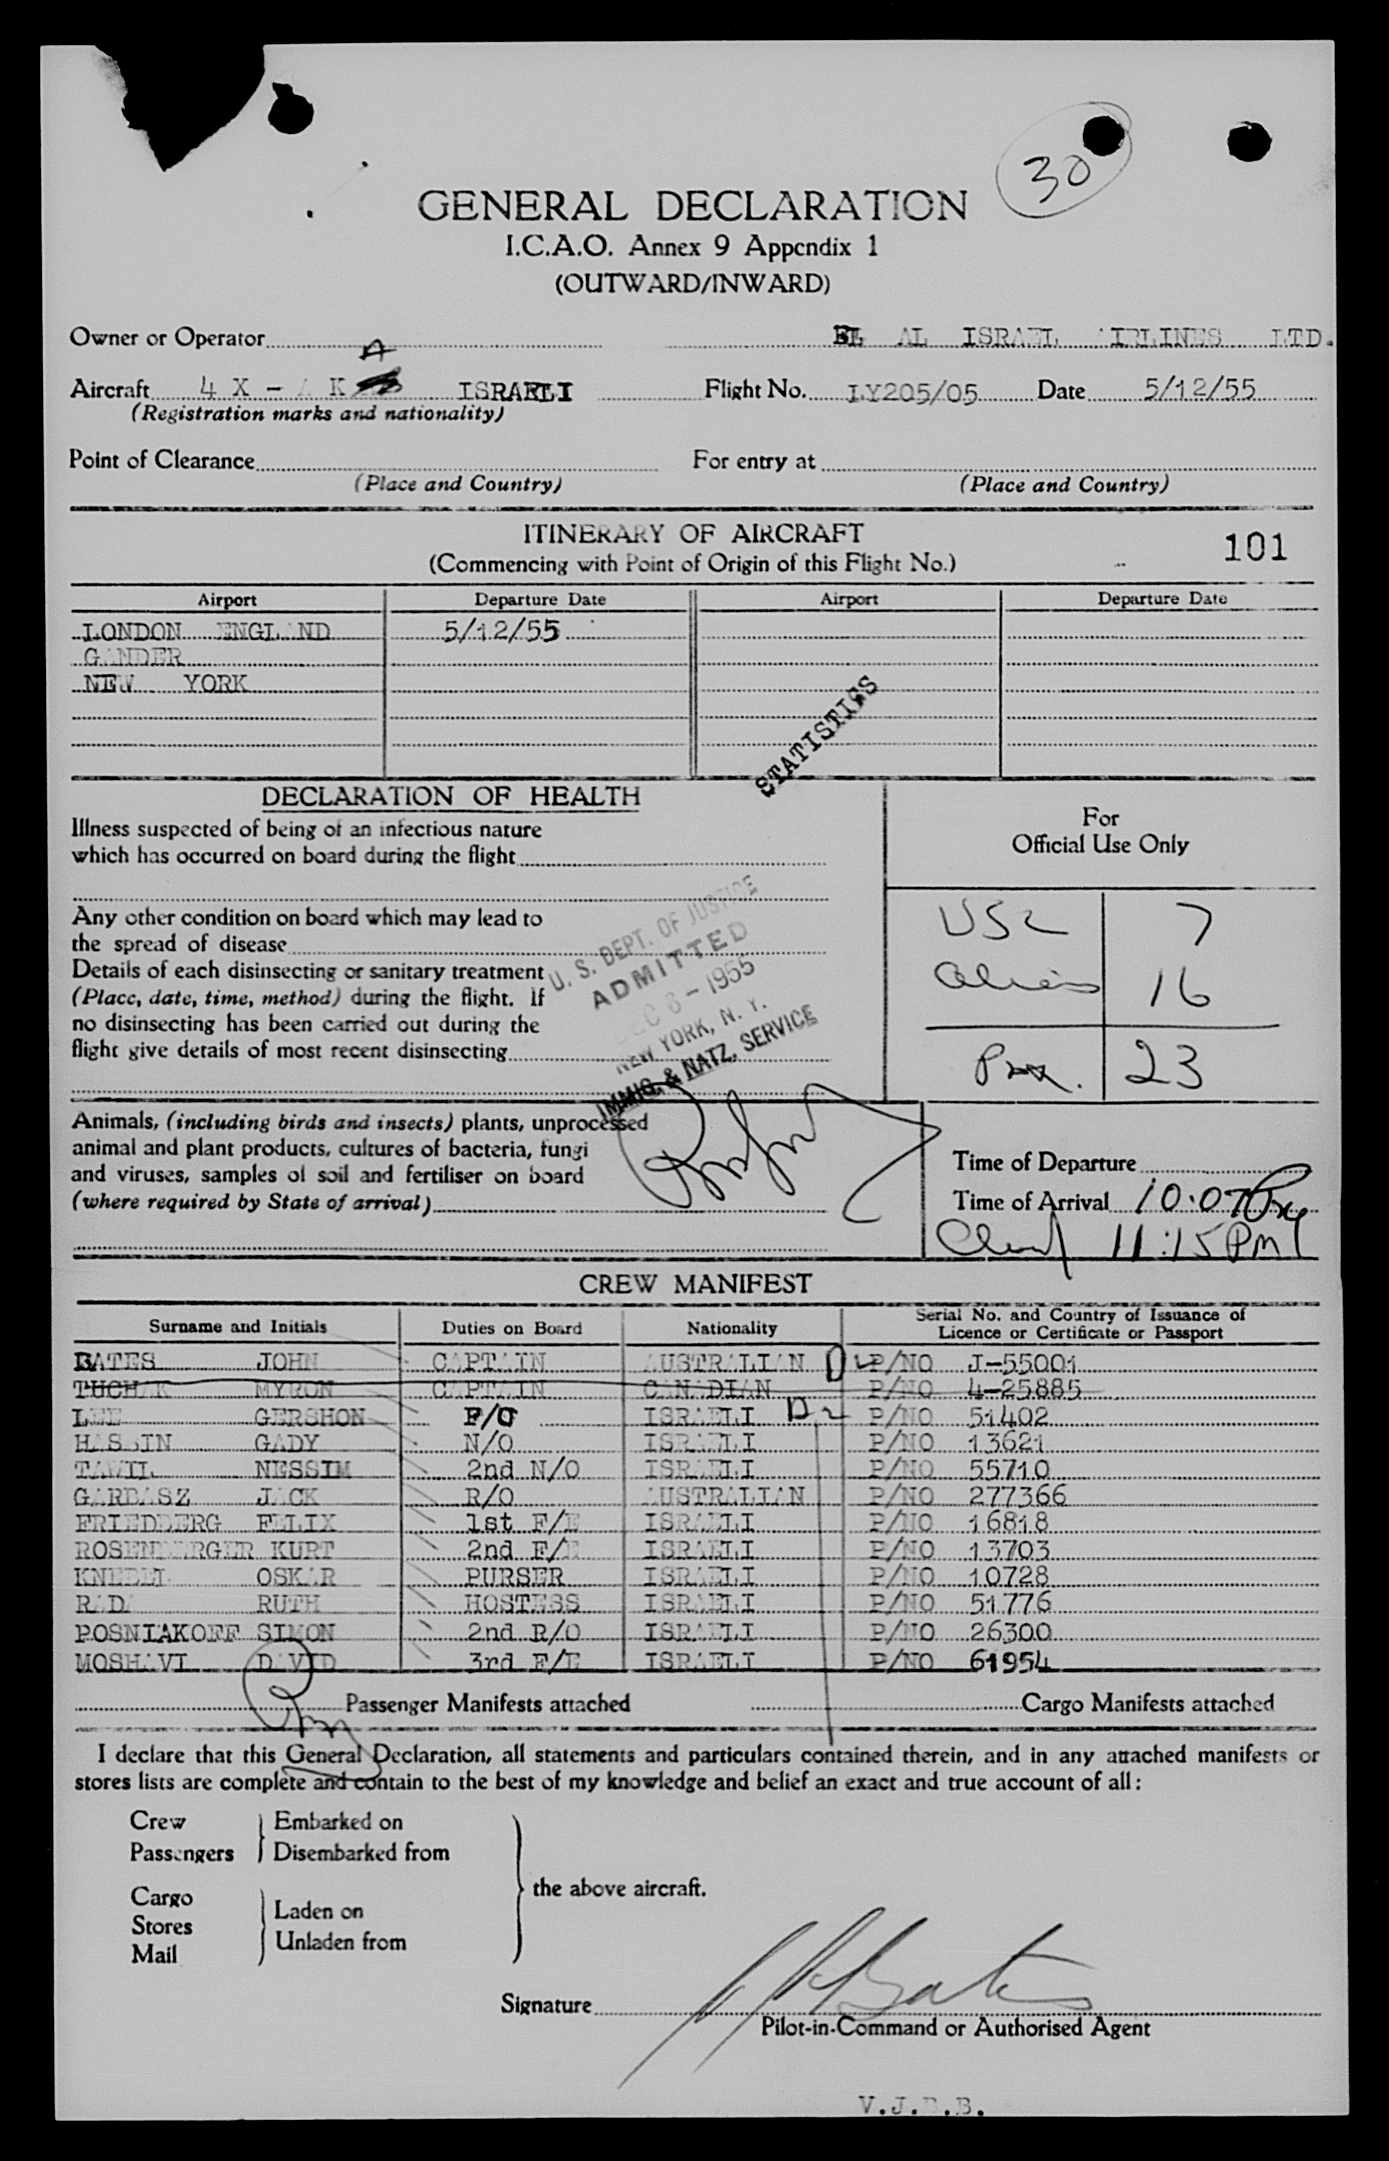 30
GENERAL DECLARATION
I.C.A.O. Annex 9 Appendix 1
(OUTWARD/INWARD)
Owner or Operator EL AL ISRAEL AIRLINES LTD.
A
Aircraft 4 X - A K ISRAELI Flight No. LY205/05 Date 5/12/55
(Registration marks and nationality)
Point of Clearance For entry at
(Place and Country) (Place and Country)
ITINERARY OF AIRCRAFT
(Commencing with Point of Origin of this Flight No.) 101
Airport Departure Date Airport Departure Date
LONDON ENGLAND 5/12/55
GANDER
NEW YORK
STATISTICS
DECLARATION OF HEALTH
Illness suspected of being of an infectious nature
which has occurred on board during the flight
For
Official Use Only
Any other condition on board which may lead to
the spread of disease
Details of each disinsecting or sanitary treatment
(Place, date, time, method) during the flight. If
no disinsecting has been carried out during the
flight give details of most recent disinsecting
U. S. DEPT. OF JUSTICE
ADMITTED
DEC 6 - 1955
NEW YORK, N. Y.
IMMIG. & NATZ. SERVICE
USC 7
Aliens 16
Pax. 23
Animals, (including birds and insects) plants, unprocessed
animal and plant products, cultures of bacteria, fungi
and viruses, samples of soil and fertiliser on board
(where required by State of arrival)
Time of Departure
Time of Arrival 10:07 PM
11:15 PM
CREW MANIFEST
Surname and Initials Duties on Board Nationality Serial No. and Country of Issuance of
Licence or Certificate or Passport
BATES JOHN CAPTAIN AUSTRALIAN P/NO J-55001
TUCHAK MYRON CAPTAIN CANADIAN P/NO 4-25885
LEE GERSHON F/O ISRAELI P/NO 51402
HASSIN GADY N/O ISRAELI P/NO 13621
TAWIL NESSIM 2nd N/O ISRAELI P/NO 55710
GARBASZ JACK R/O AUSTRALIAN P/NO 277366
FRIEDBERG FELIX 1st F/E ISRAELI P/NO 16818
ROSENBERGER KURT 2nd F/E ISRAELI P/NO 13703
KNEBEL OSKAR PURSER ISRAELI P/NO 10728
RADA RUTH HOSTESS ISRAELI P/NO 51776
POSNIAKOFF SIMON 2nd R/O ISRAELI P/NO 26300
MOSHAVI DAVID 3rd F/E ISRAELI P/NO 61954
Passenger Manifests attached Cargo Manifests attached
I declare that this General Declaration, all statements and particulars contained therein, and in any attached manifests or
stores lists are complete and contain to the best of my knowledge and belief an exact and true account of all:
Crew Embarked on
Passengers Disembarked from
the above aircraft.
Cargo Laden on
Stores Unladen from
Mail
Signature
Pilot-in-Command or Authorised Agent